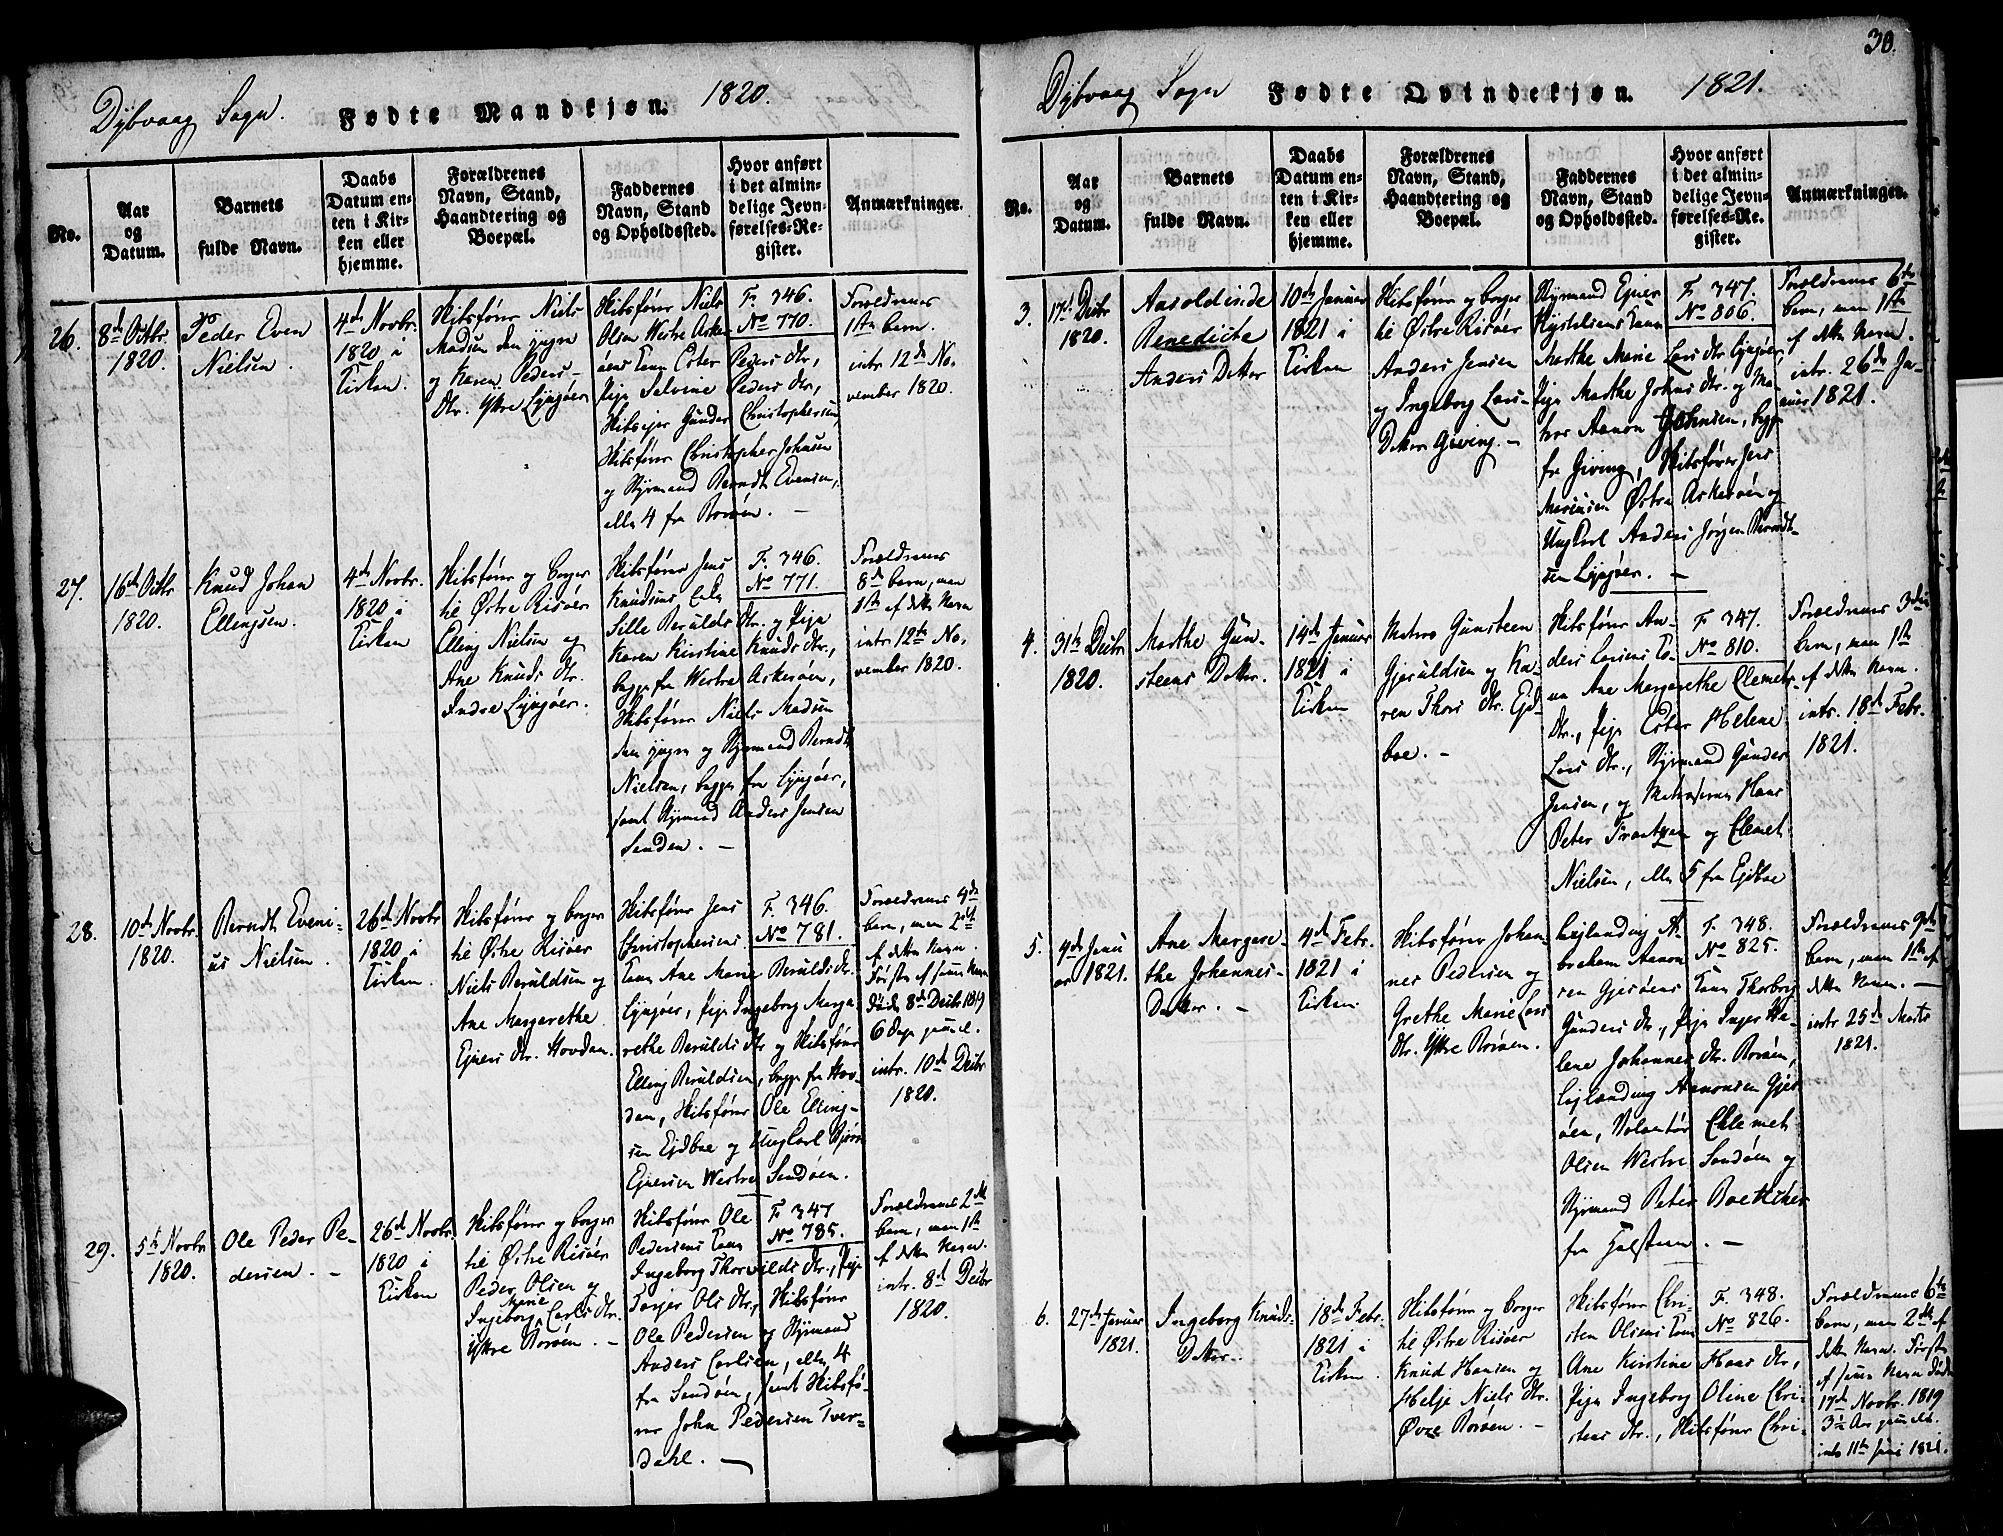 Dybvaag Sogn. Fødte Mandkjøn. 1820.
No.
Aar
og
Datum.
Barnets
fulde Navn.
Daabs
Datum en-
ten i Kir-
ken eller
hjemme.
Forældrenes
Navn, Stand,
Haandtering og
Boepæl.
Faddernes
Navn, Stand
og Opholdssted.
Hvor anført
i det almin-
delige Jevn-
førelses-Re-
gister.
Anmærkninger.
26.
8de Octbr
1820.
Peder Even
Nielsen.
4de Novbr.
1820 i
Kirken.
Skibsfører Niels
Madsen den yngre
og Karen Peders-
Dtr. Ytre Lyngøer
Skibsfører Niels
Olsen Westre Aske-
øens Kone Ester Peders Dtr,
Pige Salvine Peders Dtr,
Skibsejer Gunder Christophersen
Skibsfører Christopher Johnsen
og Styrmand Berndt Evensen,
alle 4 fra Borøen. -
F. 346.
No 770.
Forældrenes
1ste barn.
intr. 12de No-
vember 1820.
27.
16de Octbr
1820.
Knud Johan
Ellingsen.
4de Novbr.
1820 i
Kirken
Skibsfører og borger
til Østre Risøer
Elling Nielsen og
Ane Knuds Dtr.
Indre Lyngøer.
Skibsfører Jens
Knudsens Enke
Sille Berulds Dtr. og Pige
Karen Kirstine Knuds Dtr.,
begge fra Westre Askerøen,
Skibsfører Niels Madsen
den yngre og Styrmand Berndt
Nielsen, begge fra Lyngøer,
samt Styrmand Anders Jensen
Sanden. -
F. 346.
No 771.
Forældrenes
8de barn, men
1ste af dette Navn
intr. 12te No-
vember 1820.
28.
10de Novbr.
1820.
Berndt Eveni-
us Nielsen.
26de Novbr
1820 i
Kirken.
Skibsfører og borger
til Østre Risøer
Niels Beruldsen og
Ane Margarethe
Ejners Dtr. Hovdan.
Skibsfører Jens
Christophersens
Kone Ane Marie Berulds Dtr.
Lyngøer, Pige Ingeborg Marga-
rethe Berulds Dtr og Skibsfører
Elling Beruldsen, begge fra Hov-
dan, Skibsfører Ole Elling-
sen Ejdboe og Ungkarl Bjørn
Ejnersen Westre Sandøen.
F. 346.
No 781.
Forældrenes 4de
barn, men 2det
af dette Navn.
Første af samme Navn
døde 8de Decbr 1819
6 Dage gammel.
intr. 10de Decbr
1820.
29.
5te Novbr
1820.
Ole Peder Pe-
dersen. -
26de Novbr.
1820 i
Kirken
Skibsfører og borger
til Østre Risøer
Peder Olsen og
Marie
Ingeborg Carls Dtr.
Ytre Borøen. -
Skibsfører Ole
Pedersens Kone
Ingeborg Thorvilds Dtr., Pige
Torjer Ols Dtr, Skibsfører
Ole Pedersen og Styrmand
Anders Carlsen, alle 4
fra Sandøen, samt Skibsfø-
rer John Pedersen Tver-
dahl. -
F. 347
No 785.
Forældrenes 2det
barn, men 1ste
af dette Navn.
intr. 8de Decbr
1820.
30.
Dybvaag Sogn Fødte Qvindekjøn. 1821.
No.
Aar
og
Datum.
Barnets
fulde Navn.
Daabs
Datum en-
ten i Kir-
ken eller
hjemme.
Forældrenes
Navn, Stand,
Haandtering og
Boepæl.
Faddernes
Navn, Stand
og Opholdssted.
Hvor anført
i det almin-
delige Jevn-
førelses-Re-
gister.
Anmærkninger.
3.
17de Decbr
1820.
Aasoldinde
Benedicte
Anders Datter
10de Januar
1821 i
Kirken
Skibsfører og borger
til Østre Risøer
Anders Jensen
og Ingeborg Lars-
Datter Giving. -
Styrmand Ejner
Kone
Marthe Marie Lars Dtr Lyngøer
Pige Marthe Johns Dtr. og Ma-
tros Aanon Johnsen, begge
fra Giving, Skibsfører Jens
Østre Askerøen og
Ungkarl Anders Jørgen Berndt-
sen Lyngøer. -
F. 347.
No 806.
Forældrenes 6te
barn, men 1ste
af dette Navn.
intr. 26de Ja-
nuar 1821.
4.
31te Decbr
1820.
Marthe Gun-
steens Datter.
14de Januar
1821 i
Kirken
Matros Gunsteen
Gjeruldsen og Ka-
ren Thors Dtr. Ejd-
boe. -
Skibsfører An-
ders Larsens Ko-
ne Ane Margarethe Clemets-
Dtr., Pige Ester Helene
Lars Dtr., Styrmand Gunder
Jensen, og Matroserne Hans
Peter Frantzen og Clemet
Nielsen, alle 5 fra Ejdboe
F. 347.
No 810.
Forældrenes 3die
barn, men 1ste
af dette Navn.
intr. 18de Febr.
1821.
5.
4de Janu
ar 1821.
Ane Margare-
the Johannes-
Datter. -
4de Febr.
1821 i
Kirken
Skibsfører Johan-
nes Pedersen og
Grethe Marie Lars
Dtr. Ytre Borøen.
Lejlending A-
braham Aanon
sen Gjerøens Kone Thorborg
Gunders Dtr., Pige Inger He-
lene Johannes Dtr. Borøen,
Lejlænding Aanonsen Gjer-
øen, Volontør Ellemet
Olsen Westre Sandøen og
Styrmand Peter Boetticher
fra Holsteen. -
F. 348.
No 825.
Forældrenes 9de
barn, men 1ste af
dette Navn. -
intr 25de Marts
1821.
6.
27de Januar
1821.
Ingeborg Knuds-
Datter.
18de Febr.
1821 i
Kirken.
Skibsfører og borger
til Østre Risøer
Knud Hansen og
Helje Niels Dtr.
Øvre Borøen. -
Skibsfører Chri-
sten Olsens Kone
Ane Kirstine Hans Dtr,
Pige Ingeborg Oline Chri-
stens Dtr., Skibsfører Chri-
F. 348.
No 826.
Forældrenes 6te
barn, men 2det af
dette Navn. Første
af samme Navn døde
17de Novbr. 1819
3½ Aar gammel.
intr 11te Juni 1821.